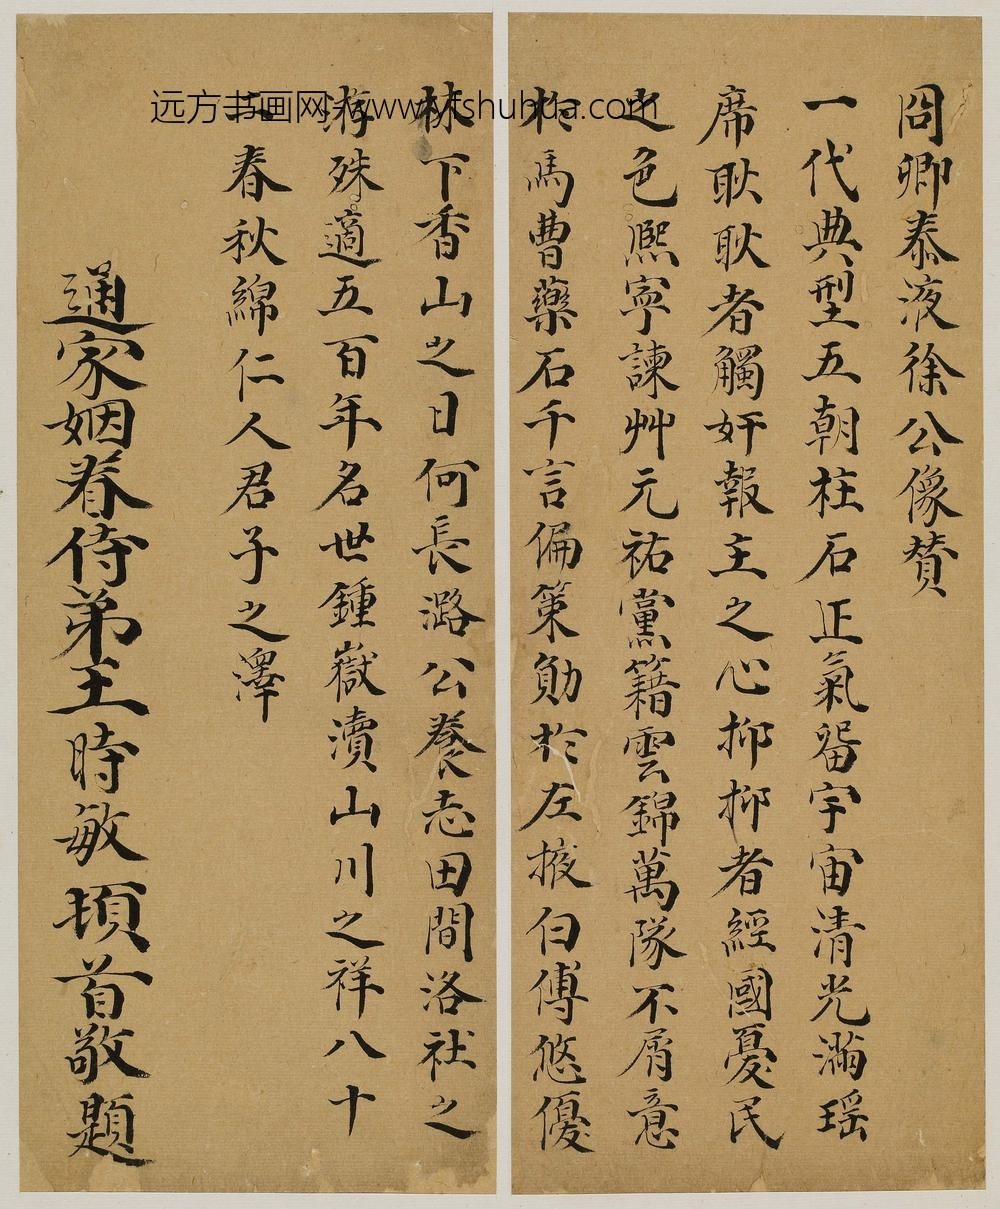 冏卿泰液徐公像贊
一代典型五朝柱石正氣畱宇宙清光滿瑶
席耿耿者觸奸報主之心抑抑者經國憂民
之色熙寧諫艸元祐黨籍雲錦萬隊不屑意
於馬曹藥石千言偏策勛於左掖白傅悠優
林下香山之日何長潞公養志田間洛社之
游殊適五百年名世鍾嶽瀆山川之祥八十
春秋綿仁人君子之澤
通家姻眷侍弟王時敏頓首敬題
远方书画网 www.yfshuhua.com